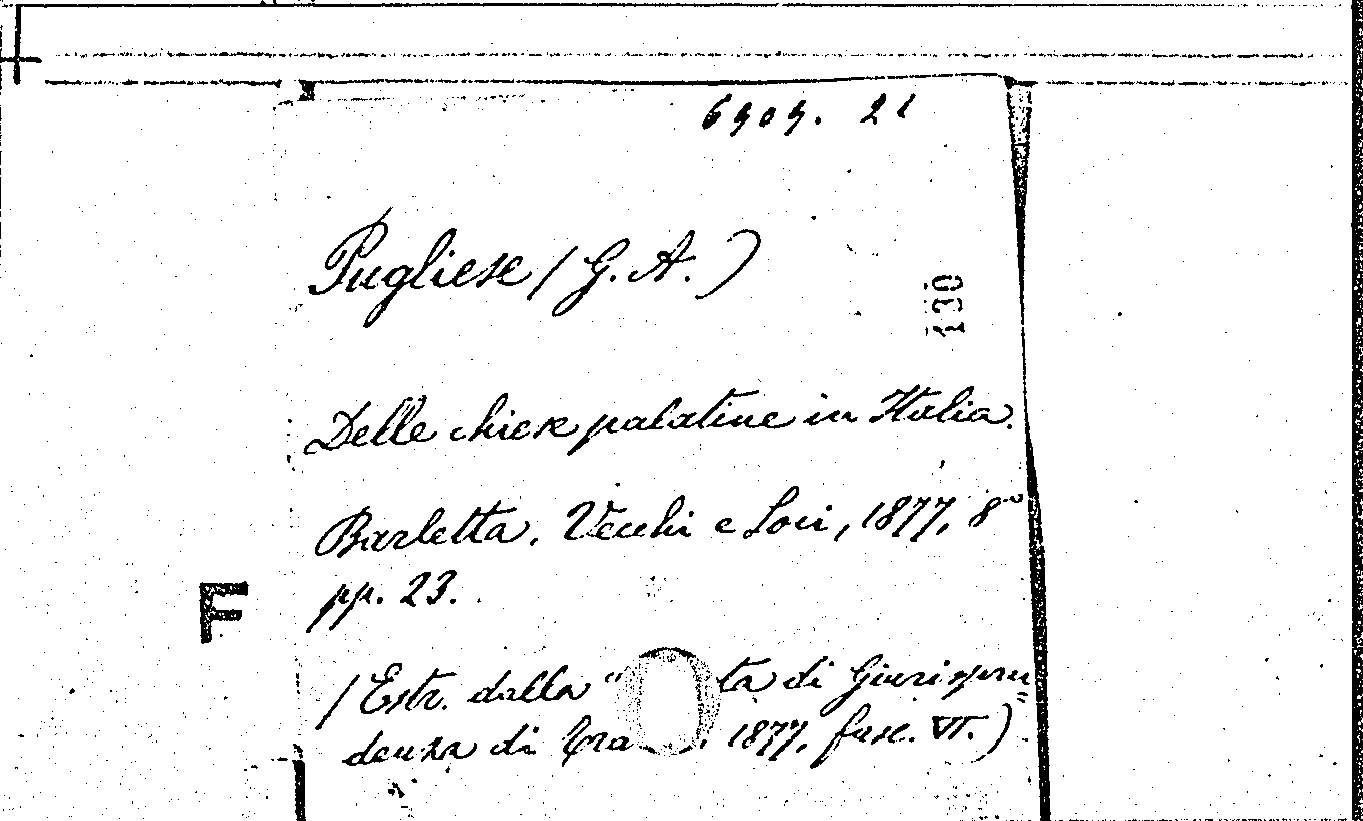 6909. 21
Pugliese (G. A.)
130
Delle chiese palatine in Italia.
Barletta. Vecchi e Soci, 1877, 8°
pp. 23.
F
(Estr. dalla " ta di Giurispru
denza di Tra . 1877, fasc. VI.)